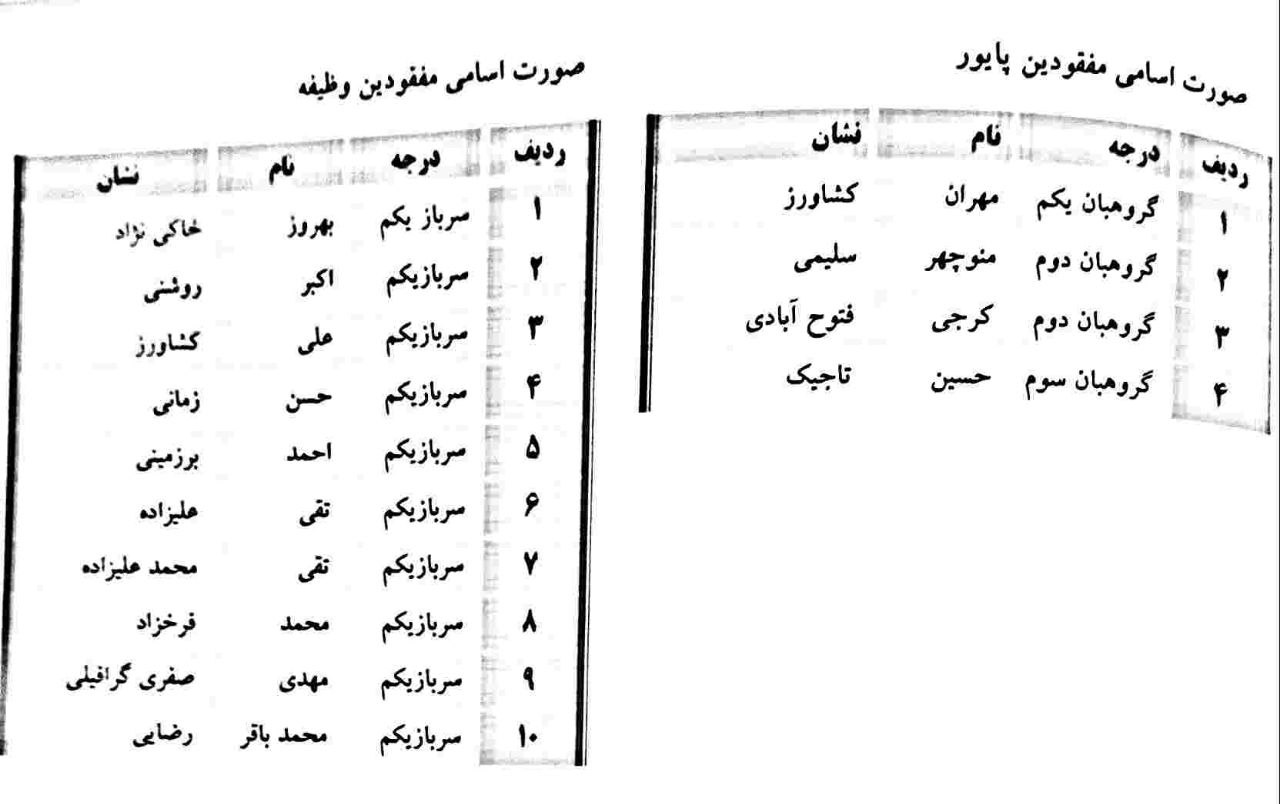 صورت اسامی مفقودین پایور
ردیف درجه نام نشان
۱ گروهبان یکم مهران کشاورز
۲ گروهبان دوم منوچهر سلیمی
۳ گروهبان دوم کرجی فتوح آبادی
۴ گروهبان سوم حسین تاجیک
صورت اسامی مفقودین وظیفه
ردیف درجه نام نشان
۱ سرباز یکم بهروز خاکی نژاد
۲ سربازیکم اکبر روشنی
۳ سربازیکم علی کشاورز
۴ سربازیکم حسن زمانی
۵ سربازیکم احمد برزمینی
۶ سربازیکم تقی علیزاده
۷ سربازیکم تقی محمد علیزاده
۸ سربازیکم محمد فرخزاد
۹ سربازیکم مهدی صفری گرافیلی
۱۰ سربازیکم محمد باقر رضایی